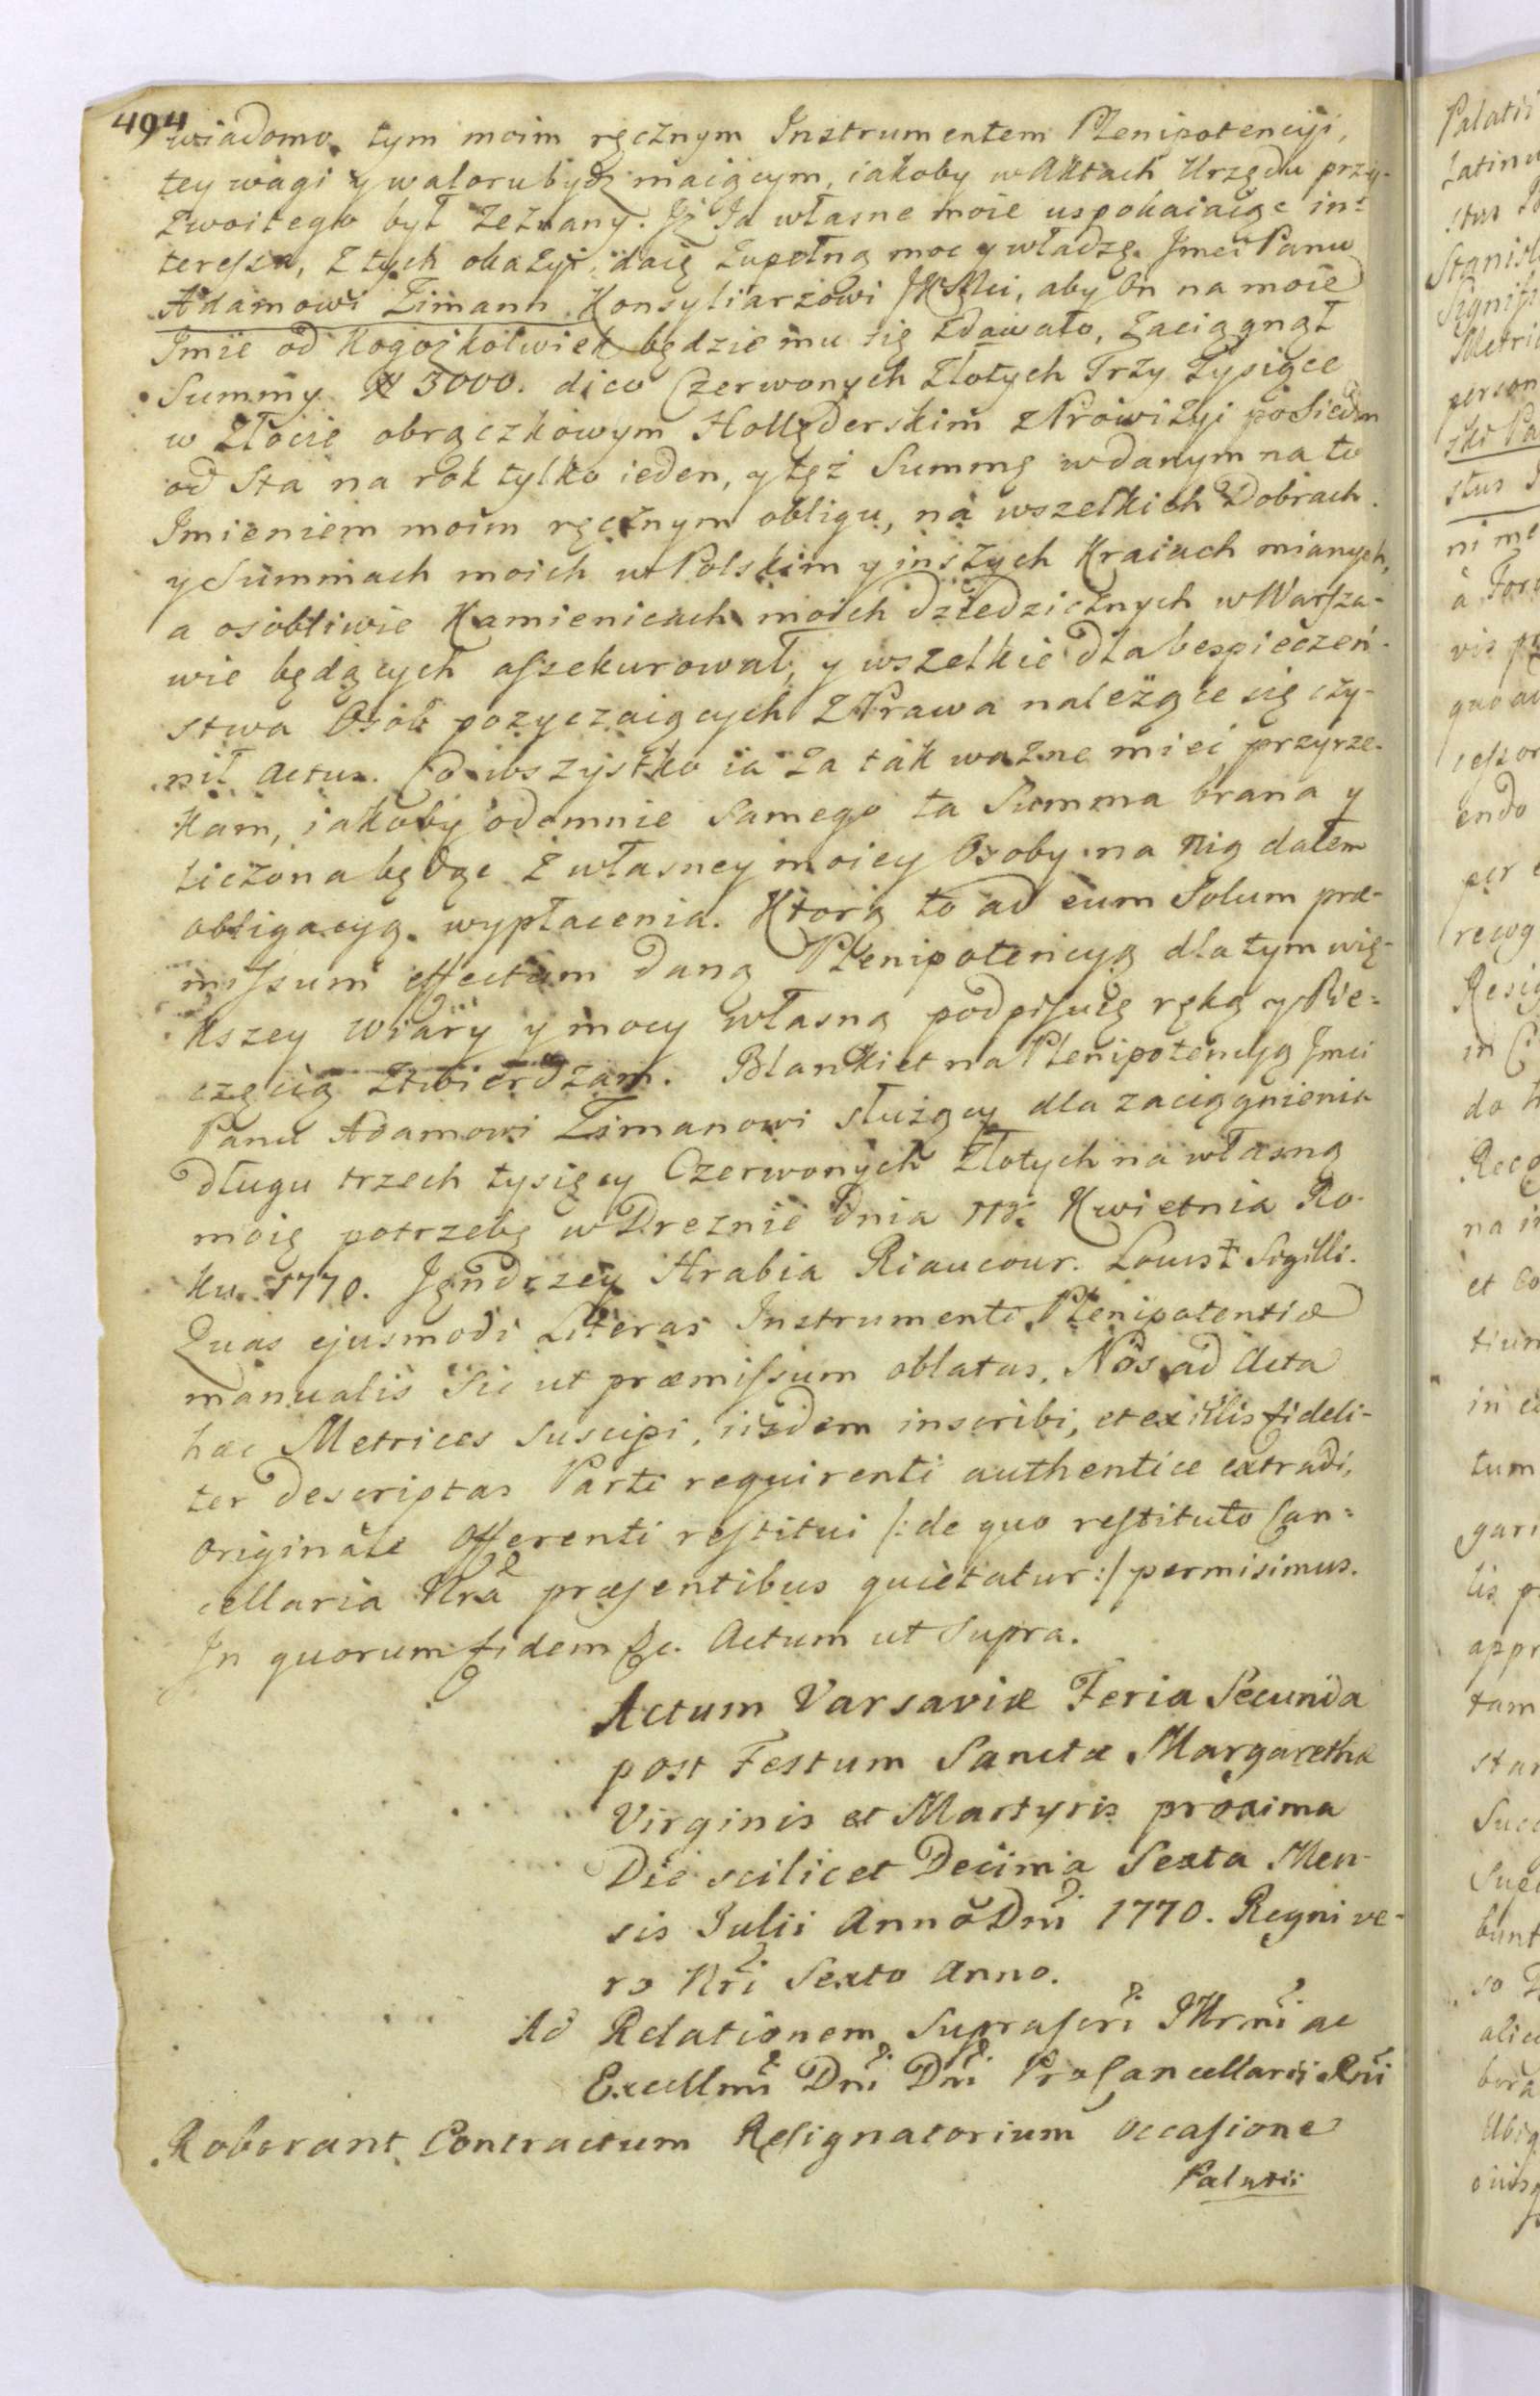 494
wiadomo. tym moim ręcznym Instrumentem Plenipotencyi,
tey wagi y waloru bydź maiącym, iakoby w Aktach Urzędu przy-
zwoitego był zeznany. Iż Ja własne moie uspokaiaiąc in-
teressa, z tych okazyi, daię zupełną moc y władzę Jmci Panu
Adamowi Zimann Konsyliarzowi JKMci, aby On na moie
Imie od kogożkolwiek będzie mu się zdawało, zaciągnął
Summy # 3000. dico Czerwonych Złotych Trzy Tysiące
w Złocie obrączkowym Hollęderskim z Prowizyi po Siedm
od Sta na rok tylko ieden, y tęż Summę w danym na to
Imieniem moim ręcznym obligu, na wszelkich Dobrach
y Summach moich w Polskim y inszych Kraiach mianych,
a osobliwie Kamienicach moich dziedzicznych w Warsza-
wie będących assekurował, y wszelkie dla bespieczeń-
stwa Osób pozyczaiących z Prawa należące się czy-
nił actus. Co wszystko ia za tak ważne mieć przyrze-
kam, iakoby odemnie Samego ta Summa brana y
liczona będąc z własney moiey Osoby na nią dałem
obligacyą wypłacenia. Ktorą to ad eum Solum præ-
missum effectum daną Plenipotencyą dla tym wię-
kszey wiary y mocy własną podpisuię ręką y Pie-
częcią ztwierdzam. Blankiet na Plenipotencyą Jmci
Panu Adamowi Zimanowi służący dla zaciągnienia
długu trzech tysięcy Czerwonych Złotych na własną
moię potrzebę w Dreznie dnia Kwietnia Ro-
ku 1770. Jgndrzey Hrabia Riaucour. Locus Sigilli.
Quas ejusmodi Literas Instrumenti Plenipotentiæ
manualis Sic ut præmissum oblatas, Nos ad Acta
hæc Metrices suscipi, iisdem inscribi, et ex illis fideli-
ter descriptas Parti requirenti authentice extradi,
originale Offerenti restitui /:de quo restituto Can-
cellaria Nra præsentibus quietatur:/ permisimus.
In quorum fidem &c. Actum ut Supra.
Actum Varsaviæ Feria Secunda
post Festum Sanctæ Margarethæ
Virginis et Martyris proxima
Die scilicet Decima Sexta Men-
sis Julii Anno Dni 1770. Regni ve-
ro Nri Sexto Anno.
Ad Relationem Suprascri Illrmi ac
Excellmi Dni Dni ProCancellarii Rni
Roborant Contractum Resignatorium occasione
Palatii